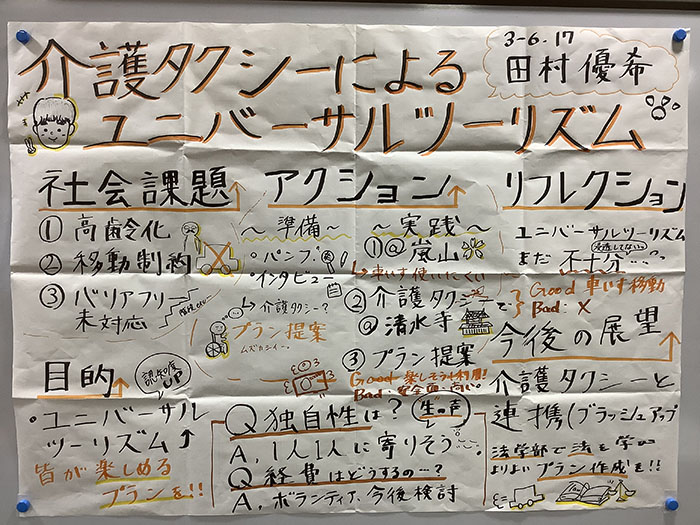 介護タクシーによる
ユニバーサルツーリズム
3-6.17
田村優希
社会課題
① 高齢化
② 移動制約
③ バリアフリー
未対応
目的
認知度
UP
・ユニバーサル
ツーリズム↑
皆が楽しめる
プランを!!
アクション
〜準備〜
・パンフ
・インタビュー
↳介護タクシー?
プラン提案
ムズカシイ…
〜実践〜
①@嵐山
↳車いす使いにくい
② 介護タクシーで
@清水寺
Good 車いす移動
Bad: ×
③ プラン提案
Good 楽しそう!利用!
Bad: 安全面
Q 独自性は?
生の声
A, 1人1人に寄りそう。
Q 経費はどうするの…?
A, ボランティア、今後検討
リフレクション
ユニバーサルツーリズム
浸透してない。
まだ不十分…?
今後の展望
介護タクシーと
連携(ブラッシュアップ
法学部で法を学び
よりよいプラン作成を!!